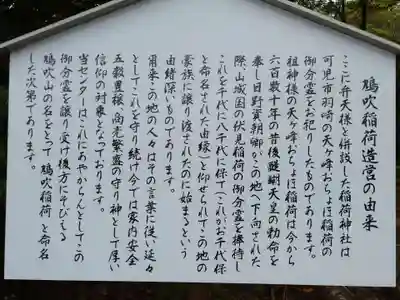 鳩吹稲荷造営の由来
ここに弁天様と併設した稲荷神社は
可児市羽崎の天ケ峰おちょぼ稲荷の
御分霊をお祀りしたものであります。
祖神様の天ケ峰おちょぼ稲荷は今から
六百数十年の昔後醍醐天皇の勅命を
奉じ日野資朝卿がこの地へ下向された
際、山城国の伏見稲荷の御分霊を捧持し
これを千代に八千代に保て(これがお千代保
と命名された由縁)と仰せられてこの地の
豪族に譲り渡されたのに始まるという
由緒深いものであります。
爾来この地の人々はその言葉に従い延々
としてこれを守り続け今では家内安全
五穀豊穣、商売繁盛の守り神として厚い
信仰の対象となっております。
当センターはこれにあやからんとしてこの
御分霊を譲り受け後方にそびえる
鳩吹山の名をとって鳩吹稲荷と命名
した次第であります。